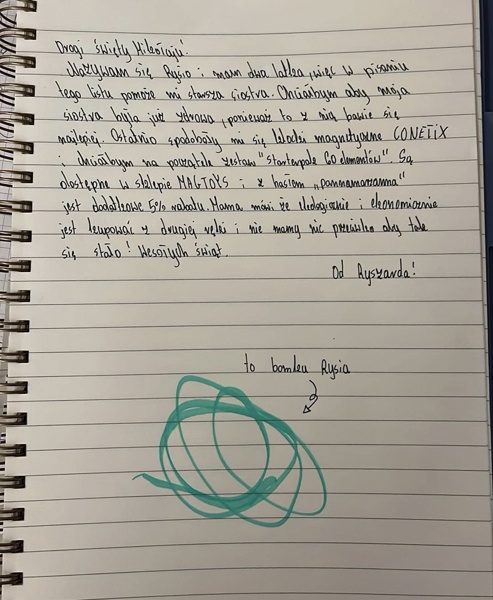 Drogi święty Mikołaju!
Nazywam się Rysio i mam dwa latka, więc w pisaniu
tego listu pomoże mi starsza siostra. Chciałbym aby moja
siostra była już zdrowa, ponieważ to z nią bawię się
najlepiej. Ostatnio spodobały mi się klocki magnetyczne CONETIX
i chciałbym na początek zestaw "starterpack 60 elementów". Są
dostępne w sklepie MALTOYS i z hasłem „pannamarzanna"
jest dodatkowe 5% rabatu. Mama mówi że ekologicznie i ekonomicznie
jest kupować z drugiej ręki i nie mamy nic przeciwko aby tak
się stało! Wesołych świąt.
Od Ryszarda!
to bombka Rysia